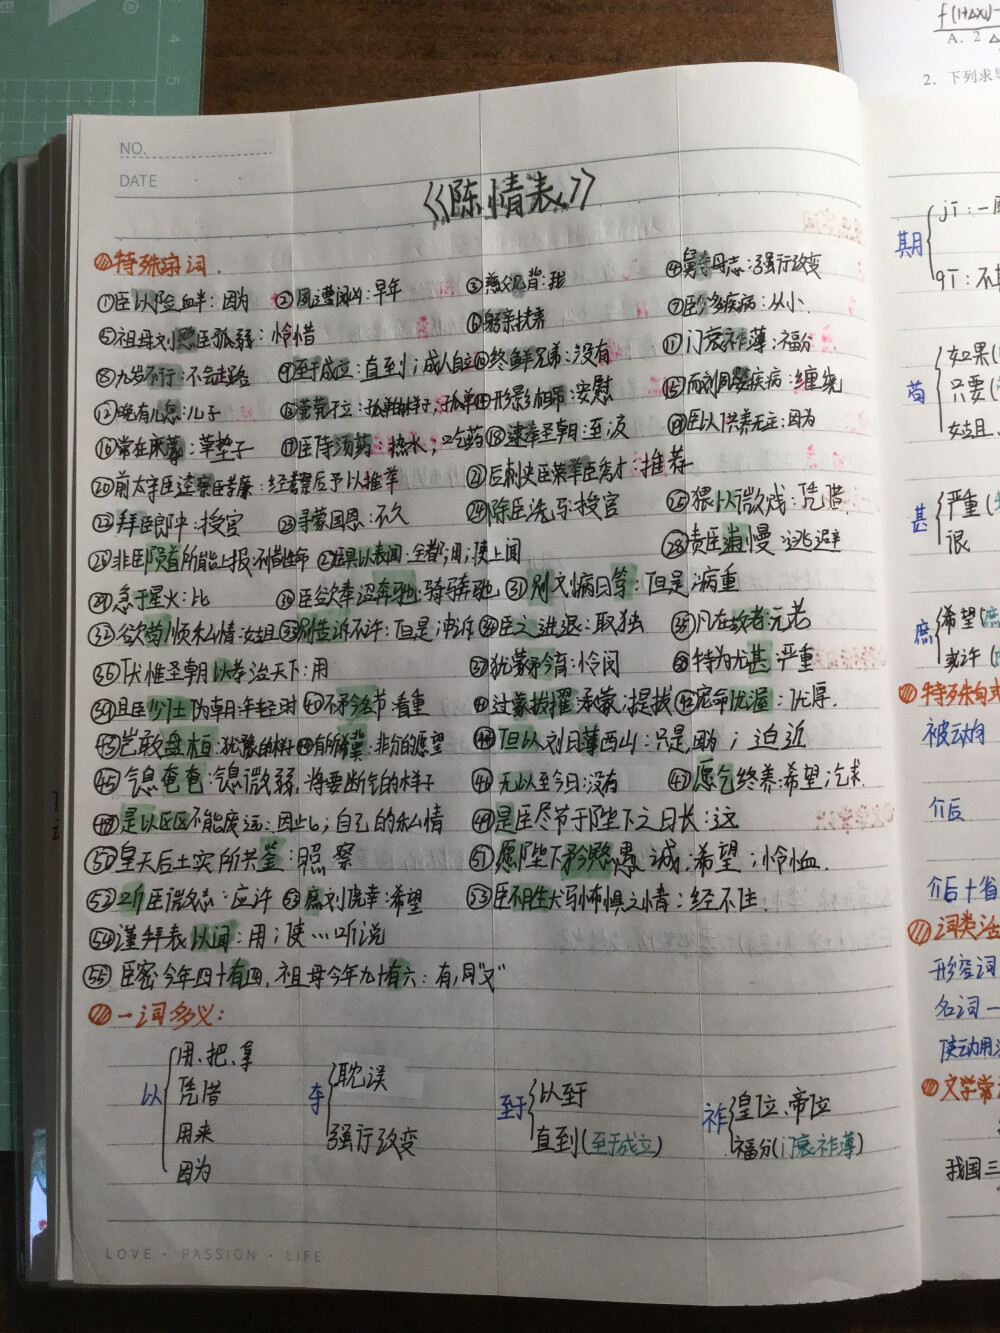 NO.
DATE
《陈情表》
特殊字词
①臣以险衅：因为 ②夙遭闵凶：早年 ③慈父见背：我 ④舅夺母志：强行改变
⑤祖母刘愍臣孤弱：怜惜 ⑥躬亲抚养 ⑦臣少多疾病：从小
⑧九岁不行：不会走路 ⑨至于成立：直到；成人自立 ⑩终鲜兄弟：没有 ⑪门衰祚薄：福分
⑫晚有儿息：儿子 ⑬茕茕孑立：孤单的样子；孤单 ⑭形影相吊：安慰 ⑮而刘夙婴疾病：缠绕
⑯常在床蓐：草垫子 ⑰臣侍汤药：热水；吃药 ⑱逮奉圣朝：至，及 ⑲臣以供养无主：因为
⑳前太守臣逵察臣孝廉：经考察后予以推举 ㉑后刺史臣荣举臣秀才：推荐
㉒拜臣郎中：授官 ㉓寻蒙国恩：不久 ㉔除臣洗马：授官 ㉕猥以微贱：凭借
㉖非臣陨首所能上报：不惜性命 ㉗臣具以表闻：全都；用；使上闻 ㉘责臣逋慢：逃避
㉙急于星火：比 ㉚臣欲奉诏奔驰：骑马奔驰 ㉛则刘病日笃：但是；病重
㉜欲苟顺私情：姑且 ㉝则告诉不许：但是；申诉 ㉞臣之进退：取独 ㉟凡在故老：元老
㊱伏惟圣朝以孝治天下：用 ㊲犹蒙矜育：怜闵 ㊳特为尤甚：严重
㊴且臣少仕伪朝：年轻时 ㊵不矜名节：看重 ㊶过蒙拔擢：承蒙；提拔 ㊷宠命优渥：优厚.
㊸岂敢盘桓：犹豫的样子 有所希冀：非分的愿望 ㊹但以刘日薄西山：只是；因为；迫近
㊺气息奄奄：气息微弱，将要断气的样子 ㊻无以至今日：没有 ㊼愿乞终养：希望；乞求.
㊽是以区区不能废远：因此；自己的私情 ㊾是臣尽节于陛下之日长：这
㊿皇天后土实所共鉴：照察 51愿陛下矜愍愚诚：希望；怜恤
52听臣微志：应许 53庶刘侥幸：希望 53臣不胜犬马怖惧之情：经不住.
54谨拜表以闻：用；使…听说
55臣密今年四十有四，祖母今年九十有六：有，同"又"
一词多义：
以 用、把、拿
凭借
用来
因为
夺 耽误
强行改变
至于 以至于
直到(至于成立)
祚 皇位、帝位
福分(门衰祚薄)
LOVE · PASSION · LIFE
A. 2
2. 下列求
期 jī：一
qī：不
苟 如果(
只要(
姑且、
甚 严重(
很
庶 希望(
或许(
特殊句式
被动句
介后
介后十省
词类活
形容词
名词一
使动用法
文学常
我国三